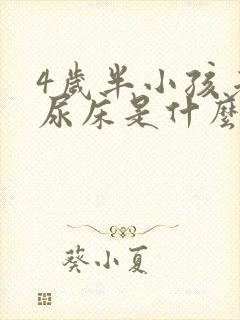 4歲半小孩
尿床是什麼
葵小夏